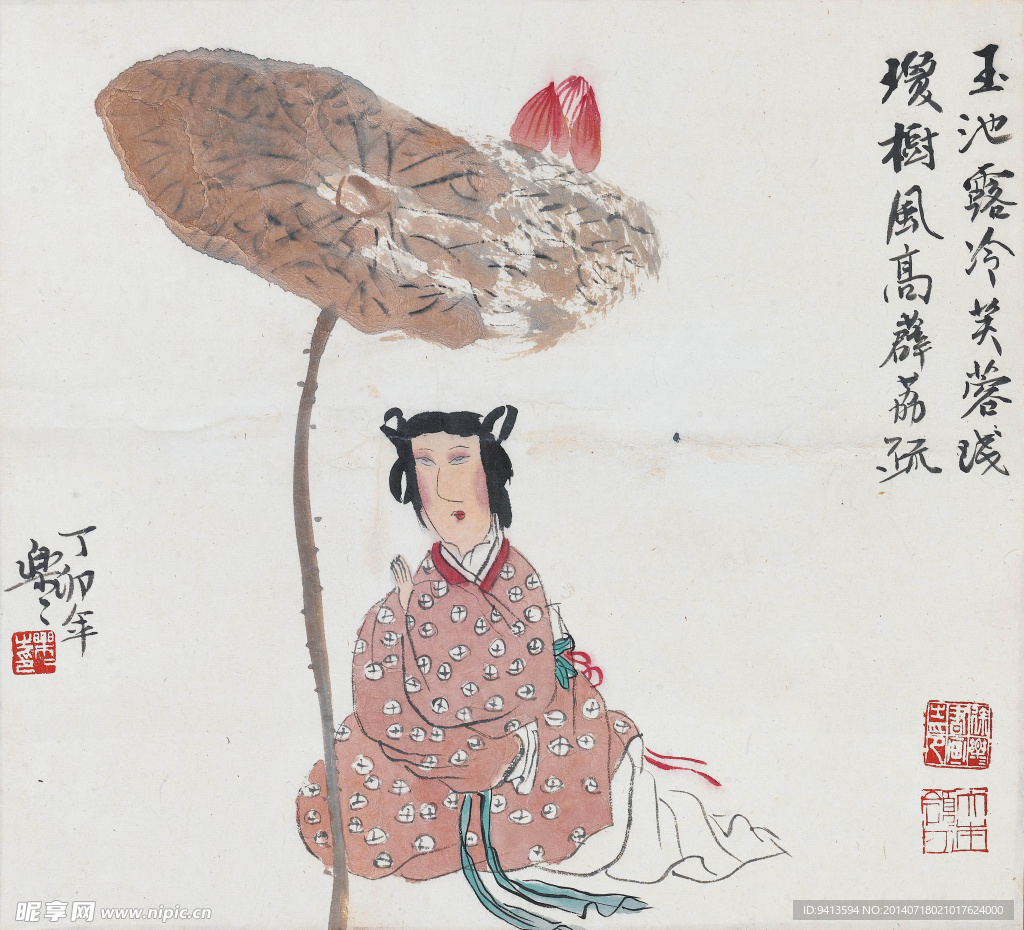 玉池露冷芙蓉浅
瓊樹風高薜荔疏
丁卯年
昵享网 www.nipic.cn
ID:9413594 NO:20140718021017624000